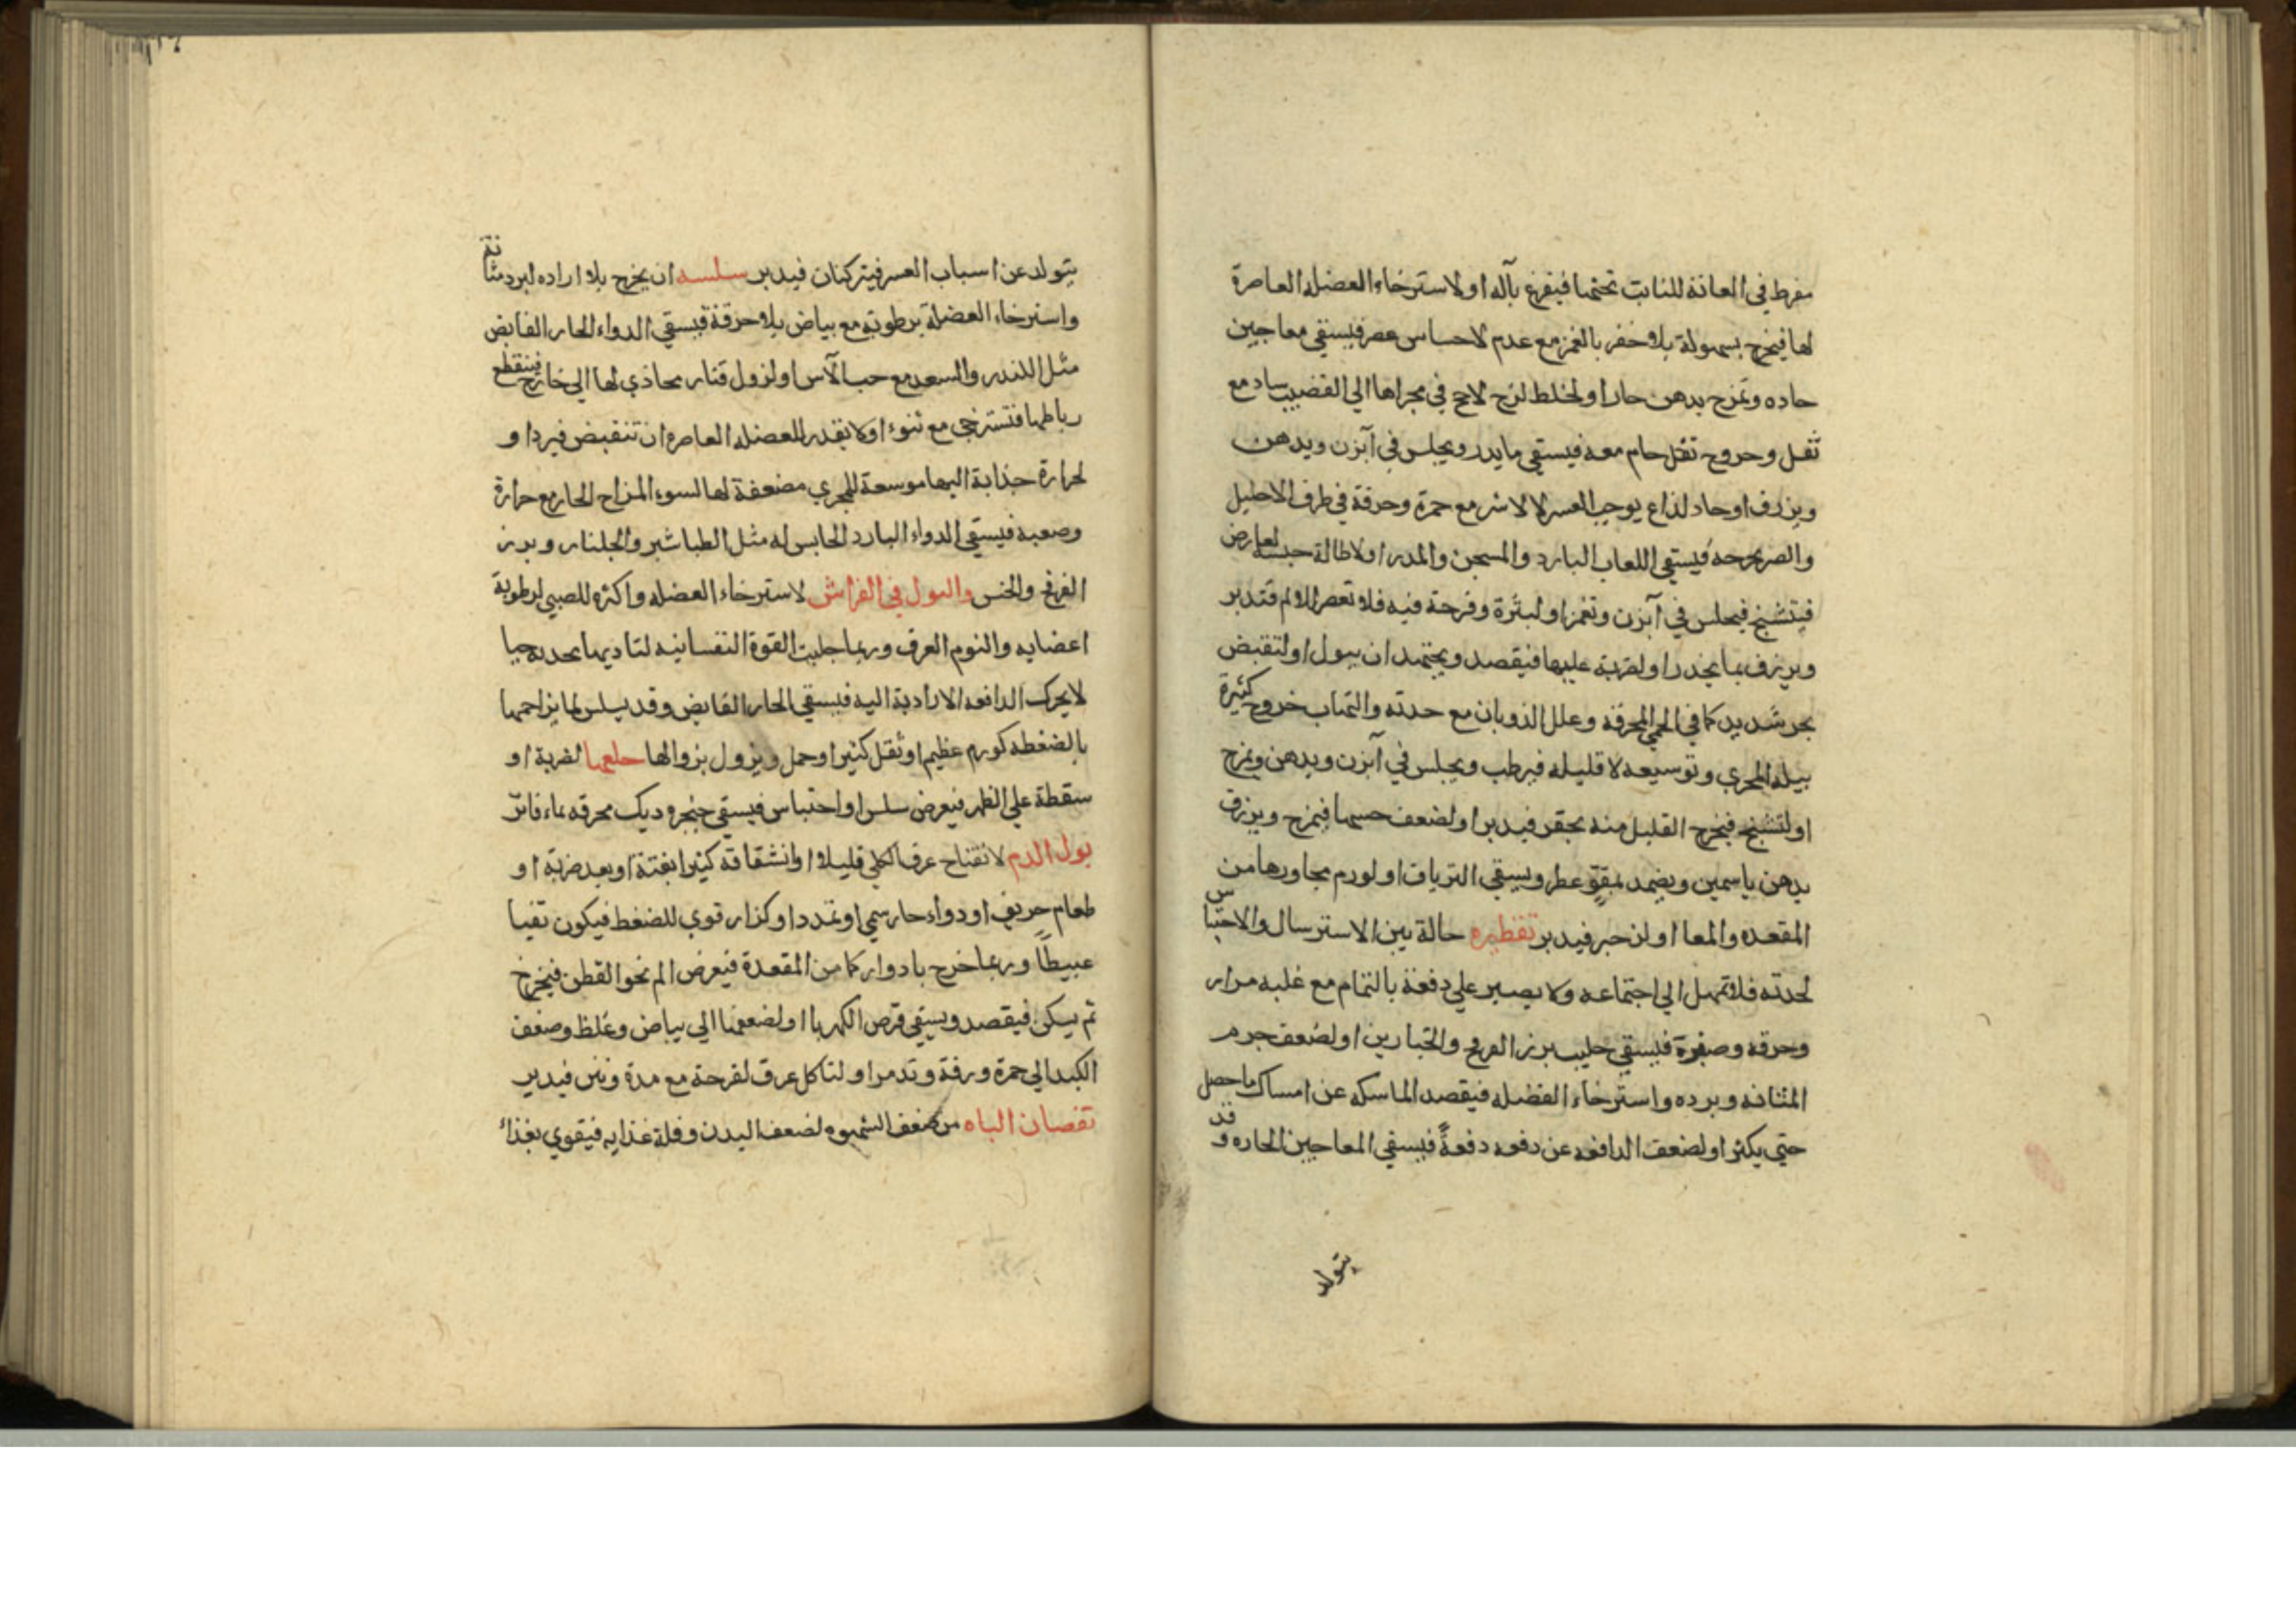 مفرط في العانة للنابت تحتها فيفرغ بآله او لاسترخاء العضله العاصرة
لها فيخرج بسهولة بلا حفز بالغمز مع عدم لاحساس عصر فيسقي معاجين
حاده وتمزج بدهن حار او لخلط لزج لاحج في مجراها الي القضيب ساد مع
ثقل وخروج ثفل خام معه فيسقي مايدر ويجلس في آبزن ويدهن
ويزرف او حاد لذاع يوجب العسر لا لاسر مع حمرة وحرقة في طرف الاحليل
والصبر حده فيسقي اللعاب البارد والمسجن والمدر او لاطالة حبسه لعارض
فيتشنج فيجلس في آبزن وتغمز او لبثرة وقرحة فيه فلا تعصر للالم فتدبر
ويزرف بما يخدر او لضربة عليها فيقصد ويجتهد ان يبول او لتقبض
بحر شديد كما في الحمي المحرقة وعلل الذوبان مع حدته والتهاب خروج كثيرة
يبله المجري وتوسيعه لا قليله فيرطب ويجلس في آبزن ويدهن ويمزج
او لتشنج فيخرج القليل منه بحقر فيدبر او لضعف حسها فيمزج ويزرق
بدهن ياسمين ويضمد بمقوٍّ عطر ويسقي الترياق او لورم مجاورها من
المقعده والمعا او لزحير فيدبر تقطيره حالة بين الاسترسال والاحتباس
لحدته فلا تمهل الي اجتماعه ولا يصبر علي دفعة بالتمام مع غلبه مرار
وحرقه وصفرة فيسقي حليب بزر الفرفج والخيارين او لضعف جرم
المثانه وبرده واسترخاء العضله فيقصد الماسكه عن امساك ما حصل
حتي يكثر او لضعف الدافعه عن دفعه دفعةً فيسقي المعاجين الحاره وقد
يتولد
يتولد عن اسباب العسر فيتركنان فيدبر سلسه ان يخرج بلا اراده لبرد مثانة
واسترخاء العضلة برطوبة مع بياض بلا حرقة فيسقي الدواء الحار القابض
مثل الكندر والسعد مع حب الآس او لزول فقار محاذي لها الي خارج فينقطع
رباطها فتسترخي مع نتوء او لا يقدر العضله العاصره ان تنقبض فيرد او
لحرارة جذابة اليها موسعة للمجري مضعفة لها لسوء المزاج الحار مع حرارة
وصعبه فيسقي الدواء البارد الحابس له مثل الطباشير والجلنار وبزر
الفرفج والخس والبول في الفراش لاسترخاء العضله واكثره للصبي لرطوبة
اعضايه والنوم الغرق وربما جلبت القوة النفسانيه لتاديها بحدته حبا
لا يحرك الدافعه الارادية اليه فيسقي الحار القابض وقد يسلس لما يزاحمها
بالضغطه كورم عظيم او ثقل كثير او حمل ويزول بزوالها خلعها لضربة او
سقطة علي الظهر فيعرض سلس او احتباس فيسقي حنجره ديك محرقه بماء فاتر
بول الدم لانفتاح عرف الكلي قليلا او انشقاقه كثيرا بغتة او بعد ضربة او
طعام حريف او دواء حار سمي او تمدد او كزاز قوي للضغط فيكون نقيا
عبيطًا وربما خرج بادوار كما من المقعدة فيعرض الم نحو القطن فيخرج
ثم يسكن فيقصد ويسقي قرص الكهربا او لضعفها الي بياض وغلظ وضعف
الكبد الي حمرة ورقة وتدمر او لتاكل عرق لقرحة مع مدة ونتن فيدبر
نقصان الباه من ضعف الشهوه لضعف البدن وقلة غذايه فيقوي بغذاء